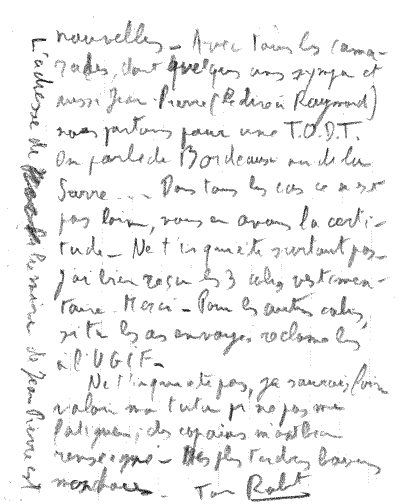 nouvelles - Avec tous les cama-
rades, dont quelques uns sympa et
aussi Jean-Pierre (le dire à Raymond)
nous partons pour une T.O.D.T.
On parle de Bordeaux ou de la
Sarre ... Dans tous les cas ce n'est
pas loin, nous en avons la certi-
tude - Ne t'inquiète surtout pas -
J'ai bien reçu les 3 colis vestimen-
taire. Merci - Pour les autres colis,
si tu les as envoyés réclame les
à l'UGIF -
Ne t'inquiète pas, je saurais faire
valoir ma
fatiguer, des copains m'ont bien
renseigné - Mes plus tendres baisers
Ton Robert
L'adresse de la mère de Jean Pierre est